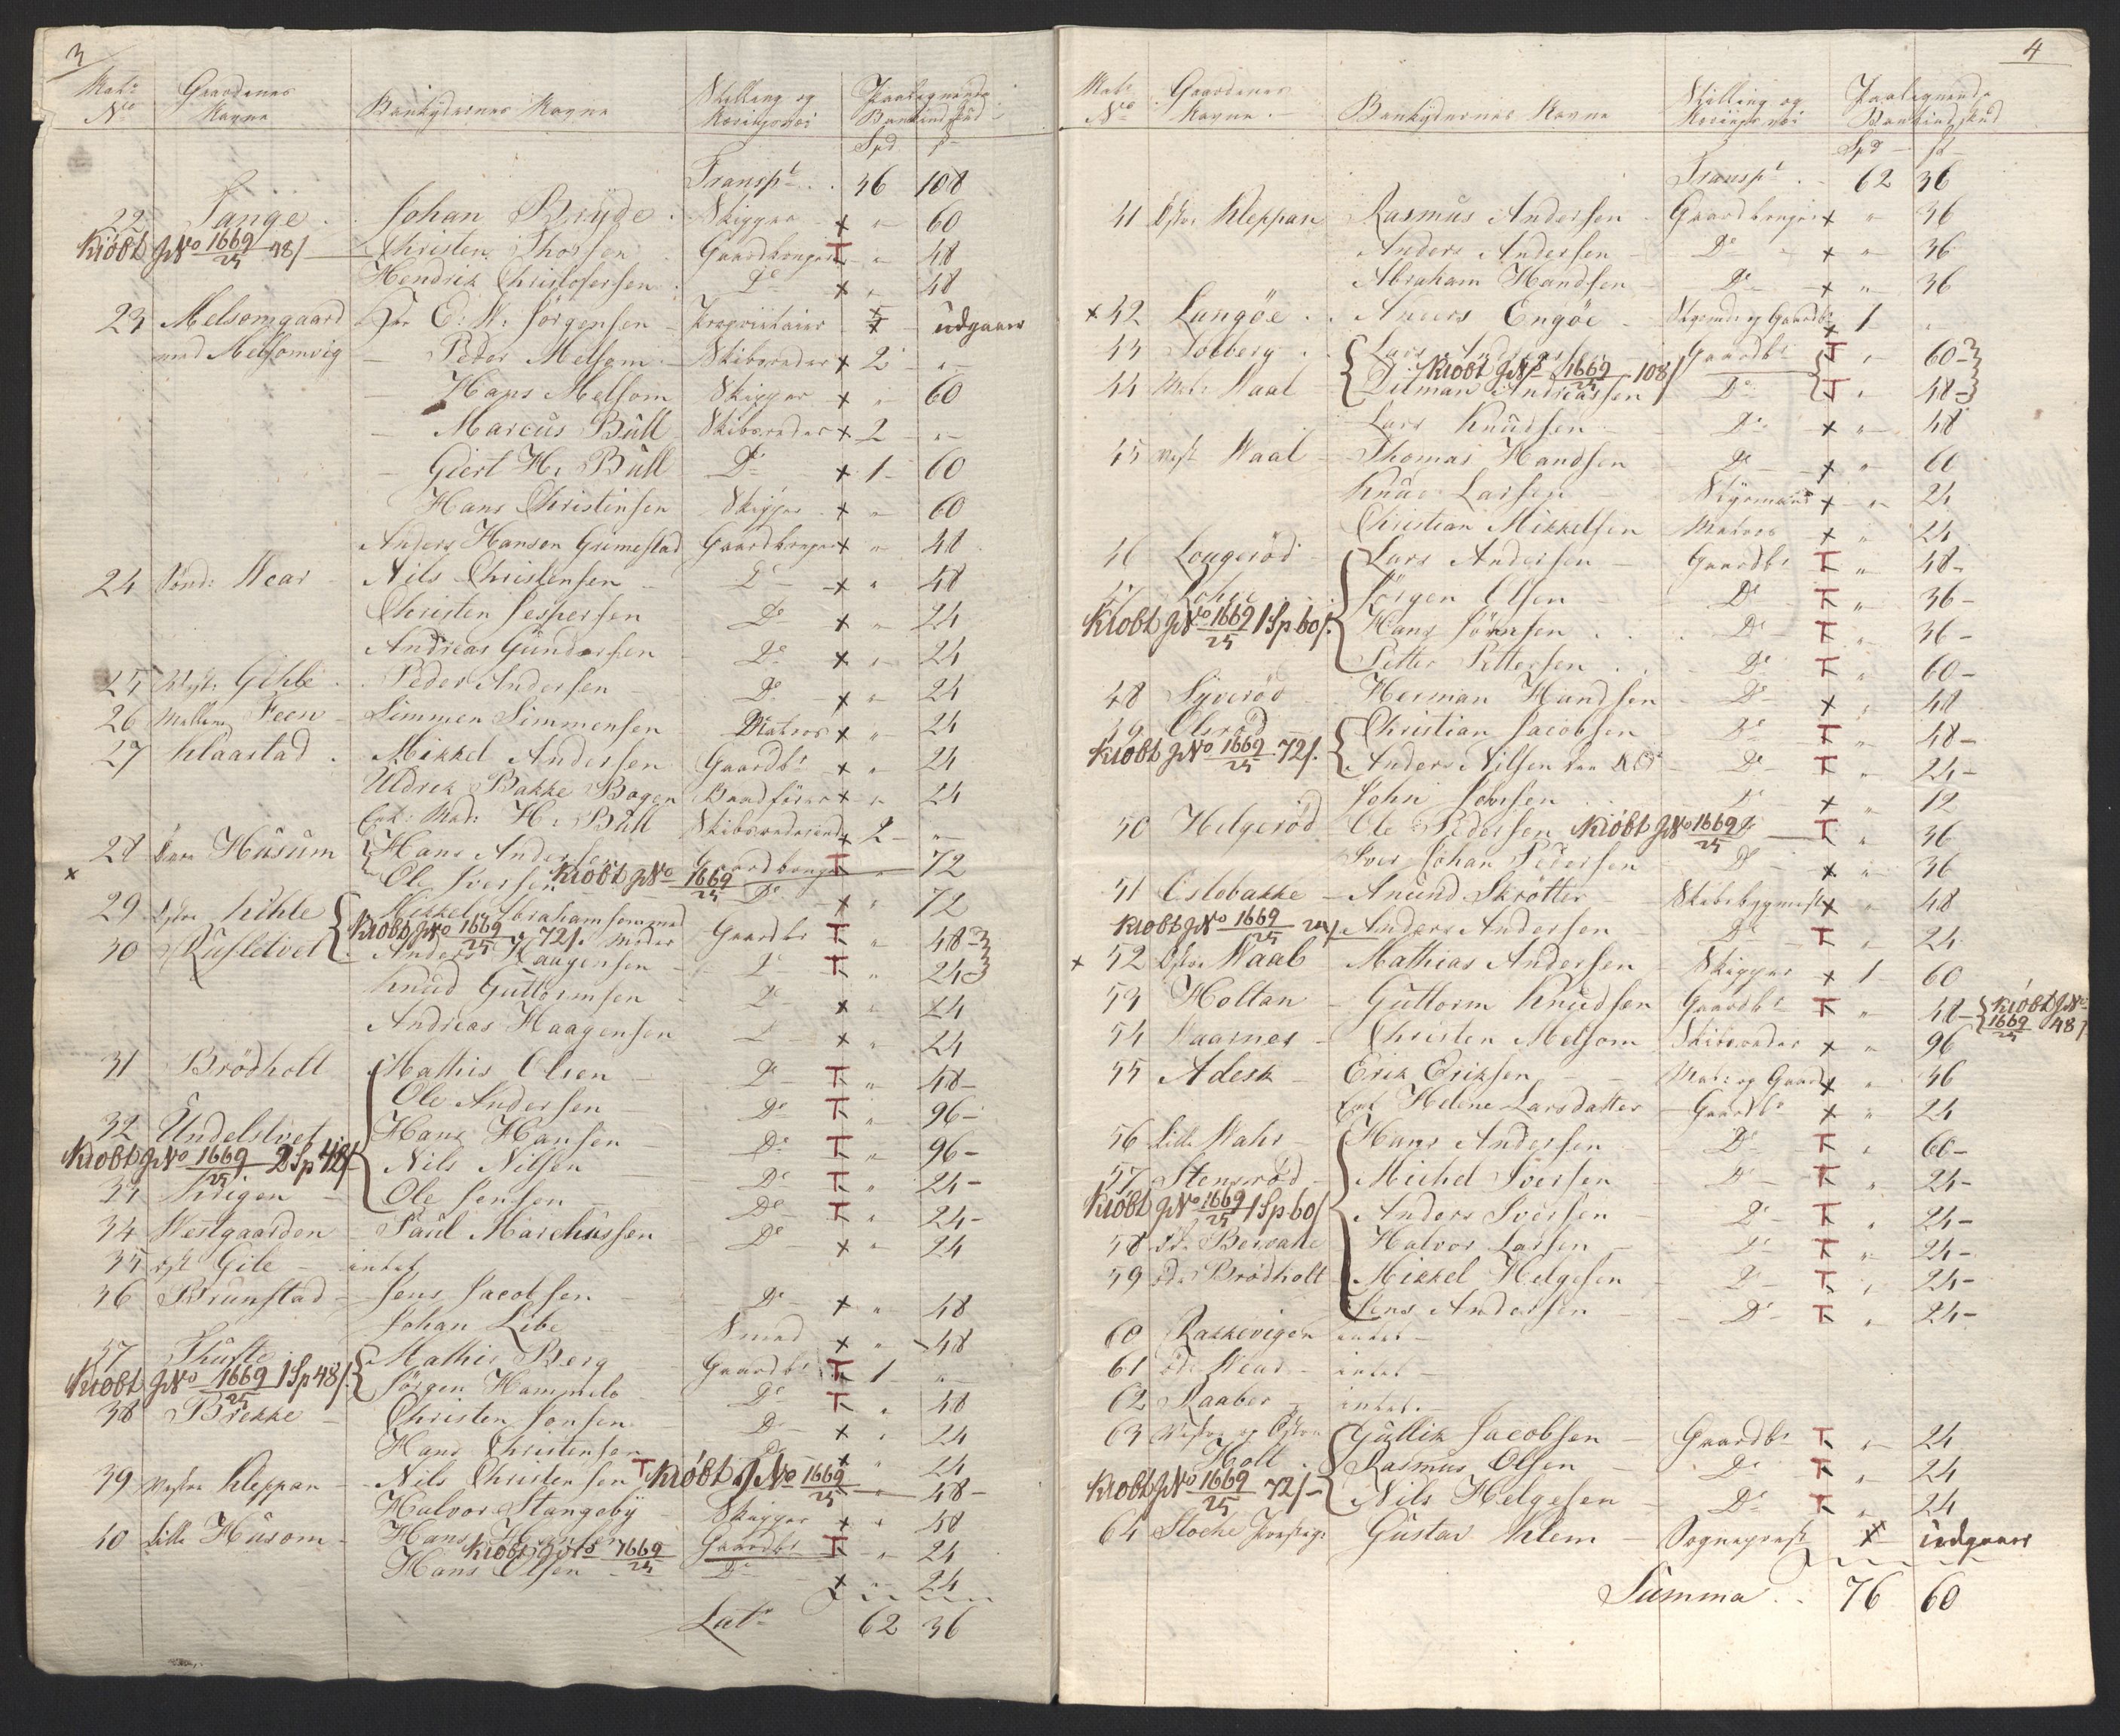 3
Mats No Gaardenes Navne Bankydernes Navne Stilling og Næringsvei Paalignede Bankindskud
Spd ß
Transpt 46 108
22 Tange Johan Bryde Skipper x " 60
Kiöbt J No 1669/25 48/ Christen Thorsen Gaardbruger T " 48
Hendrik Christofersen Do x " 48
23 Melsomgaard Hr E: N: Jörgensen Proprietaier x udgaaer
med Melsomvig Peder Melsom Skibsreder x 2 "
Hans Melsom Skipper x " 60
Marcus Bull Skibsreder x 2 "
Giert H. Bull Do x 1 60
Hans Christensen Skipper x " 60
Anders Hansen Grimestad Gaardbruger x " 48
24 Sönd: Wear Nils Christensen Do x " 48
Christen Jespersen Do x " 24
Andreas Gundersen Do x " 24
25 Gihle Peder Andersen Do x " 24
26 Mellem Feen Simmen Simmensen Matros x " 24
27 Klaastad Mikkel Andersen Gaardbr x " 24
Uldrik Bakke Bogen Baadförer x " 24
Enk: Mad: H: Bull x 2 "
28 Husum Hans Andersen Gaardbruger T " 72
x Ole Iversen Kiöbt J No 1669/25 Do x " 72
29 Kihle Mikkel Abrahamsen med
Kiöbt J No 1669/25 72/ Moder Gaardbr T " 48
30 Rusletvet Anders Haagensen Do T " 24
Knud Guttormsen Do x " 24
Andreas Haagensen Do x " 24
31 Brödholt Mathis Olsen Do T " 48
Ole Andersen Do T " 96
32 Undelstvet Hans Hansen Do T " 96
Kiöbt J No 1669/25 2 Sp 48/ Nils Nilsen Do T " 24
33 Krigen Ole Jensen Do T " 24
34 Vestgaarden Paul Marchussen Do x " 24
35 Gile intet
36 Brunstad Jens Jacobsen Do x " 48
Johan Libe Smed x " 48
37 Thufte Mathis Berg Gaardbr T 1 "
Kiöbt J No 1669/25 1 Sp 48/ Jörgen Hammelo Do T " 48
38 Brekke Christen Jonsen Do x " 24
Hans Christensen Do x " 24
39 Vestre Kleppan Nils Christensen T Kiöbt J No 1669/25 " 48
Halvor Stangeby Skipper x " 48
40 Lille Husom Hans Hansen Gaardbr T " 24
Kiöbt J No 1669/25
Hans Olsen Do x " 24
Lats 62 36
4
Mats No Gaardenes Navne Bankydernes Navne Stilling og Næringsvei Paalignede Bankindskud
Spd ß
Transpt 62 36
41 Östre Kleppan Rasmus Andersen Gaardbruger x " 36
Anders Andersen Do x " 36
Abraham Handsen Do x " 36
x 42 Langöe Anders Engöe Styrmd og Gaardbr x 1 "
43 Solberg Lars Gaardbr T " 60
Kiöbt J No 1669/25 108/
44 Vaal Tilman Andreassen Do T " 48
Lars Knudsen Do x " 48
45 Vest Vaal Thomas Handsen Do x " 60
Knud Larsen Styrmand x " 24
Christian Mikkelsen Matros x " 24
46 Lougeröd Lars Andersen Gaardbr T " 48
47 Jörgen Olsen Do T " 36
Kiöbt J No 1669/25 1 Sp 60/ Hans Jörnsen Do T " 36
Petter Pettersen Do T " 60
48 Syveröd Herman Handsen Do x " 48
49 Olsröd Christian Jacobsen Do T " 48
Kiöbt J No 1669/25 72/ Anders Nilsen Do T " 24
John Iversen Do x " 12
50 Helgeröd Ole Pedersen Kiöbt J No 1669/25 T " 36
Iver Johan Pedersen Do x " 36
51 Oslebakke Anund Skrötter Skibsbygmest x " 48
Kiöbt J No 1669/25 24/ Anders Andersen Do T " 24
x 52 Östre Vaal Mathias Andersen Skipper x 1 60
53 Holtan Guttorm Knudsen Gaardbr T " 48 Kiöbt J No 1669/25 48/
54 Vaarnes Christen Melsom Skibsreder x " 96
55 Adesk Erik Eriksen Mat: og Gaardbr x " 36
Enk Helene Larsdatter Gaardbr x " 24
56 Lille Hans Andersen Do T " 60
57 Stensröd Michel Iversen Do T " 24
Kiöbt J No 1669/25 1 Sp 60/ Anders Iversen Do T " 24
58 Halvor Larsen Do T " 24
59 öde Brödholt Mikkel Helgesen Do T " 24
Jens Andersen Do T " 24
60 Rakkevigen intet
61 öde Vear intet
62 Raaber intet
63 Vestre og Östre Gullik Jacobsen Gaardbr T " 24
Holt Rasmus Olsen Do T " 24
Kiöbt J No 1669/25 72/ Nils Helgesen Do T " 24
64 Stocke Gustav Klem Sognepræst x udgaaer
Summa 76 60